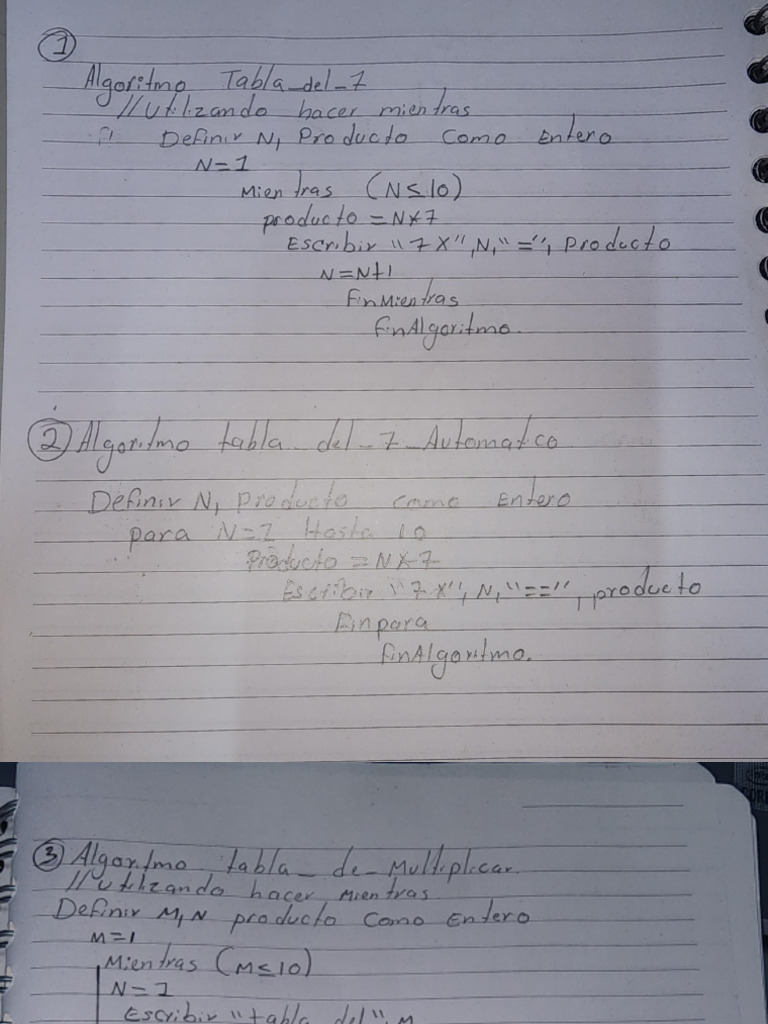 1
Algoritmo Tabla_del_7
//Utilizando hacer mientras
Definir N, Producto Como Entero
N=1
Mientras (N≤10)
producto = N*7
Escribir "7 X", N, "=", Producto
N=N+1
FinMientras
finAlgoritmo.
2 Algoritmo tabla_del_7_Automatco
Definir N, producto como Entero
para N=1 Hasta 10
Producto = N*7
Escribir "7 X", N, "==", producto
Finpara
finAlgoritmo.
3 Algoritmo tabla_de_Multiplicar.
//utilizando hacer mientras
Definir M, N producto Como Entero
M=1
Mientras (M≤10)
N=1
Escribir "tabla del", M